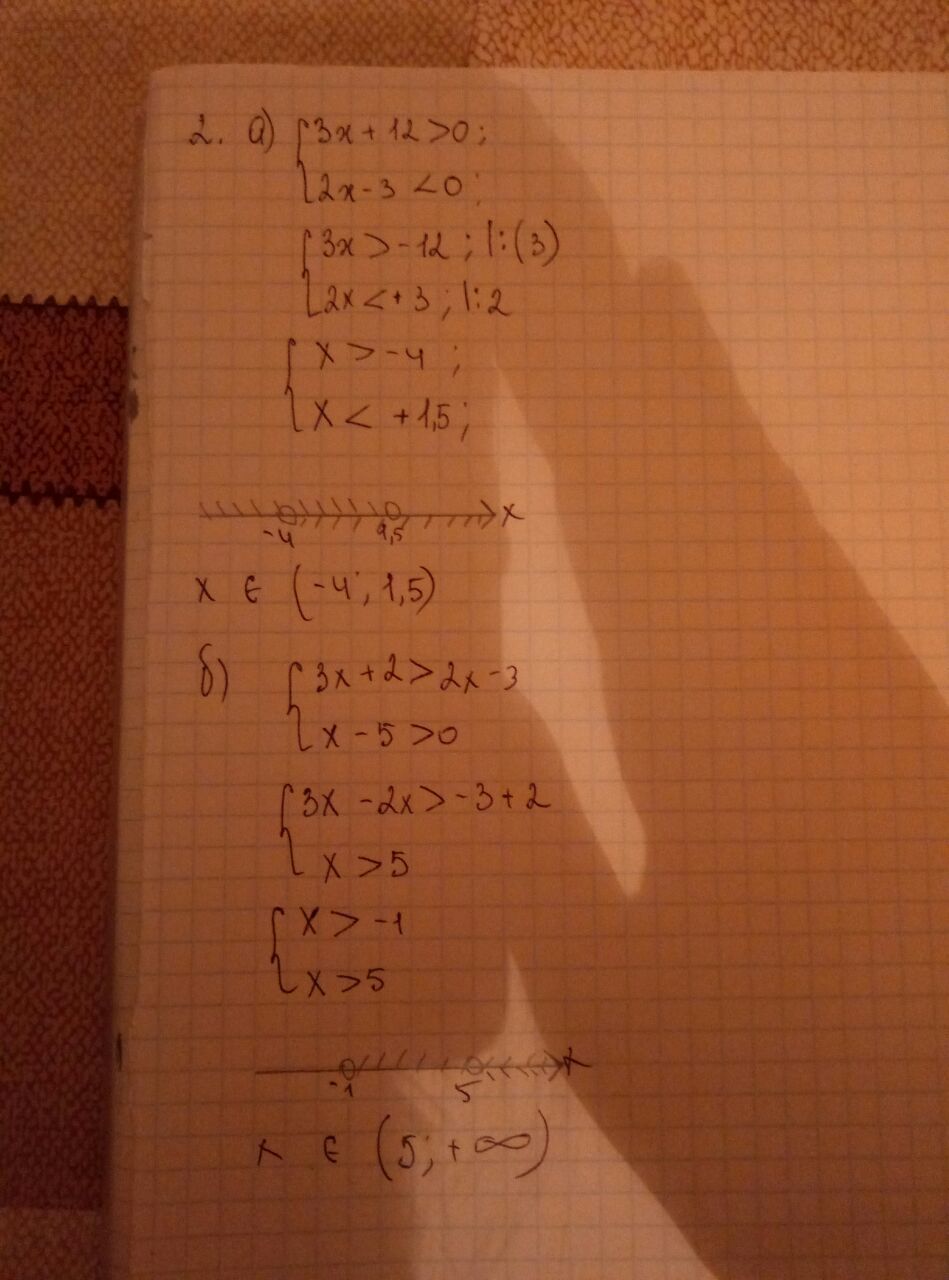 2. а) {3x + 12 > 0;
2x - 3 < 0;
{3x > -12; |:(3)
2x < +3; |:2
{x > -4;
x < +1,5;
-4 1,5 x
x ∈ (-4; 1,5)
б) {3x + 2 > 2x - 3
x - 5 > 0
{3x - 2x > -3 + 2
x > 5
{x > -1
x > 5
-1 5 x
x ∈ (5; +∞)